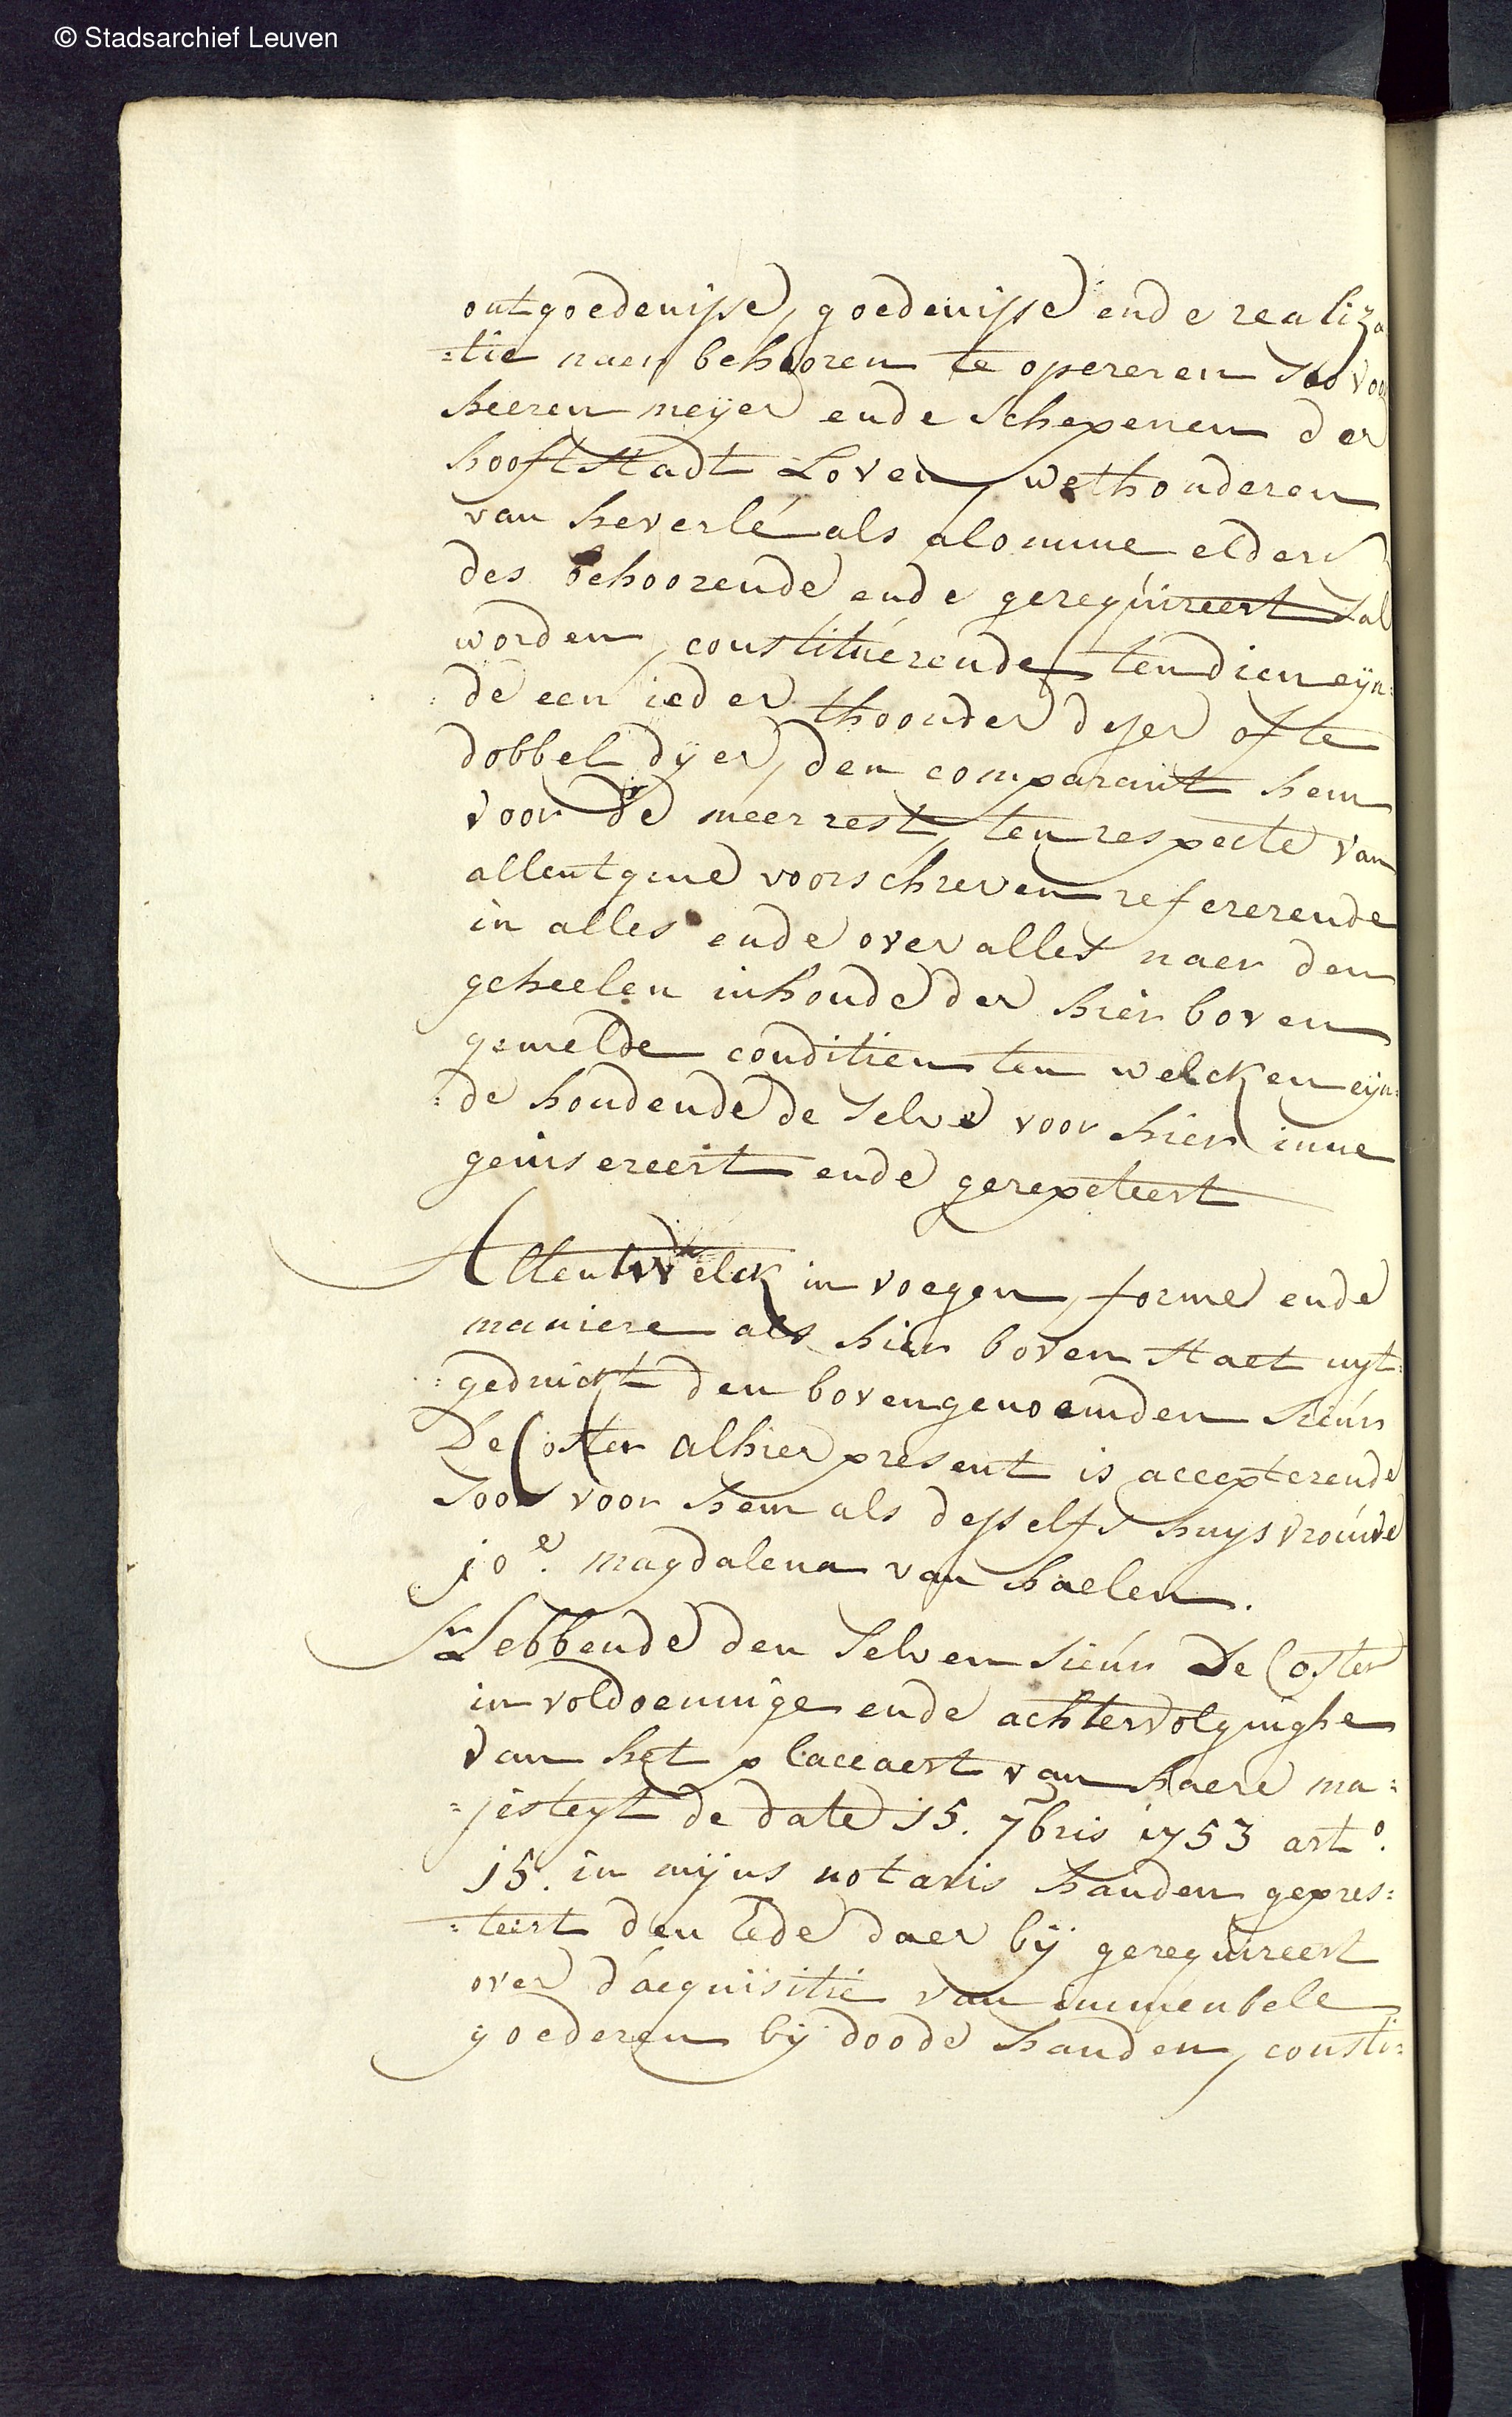 © Stadsarchief Leuven
ontgoedenisse, goedenisse ende realiza
=tie naer behooren te opereren soo voor
heeren meijer ende schepenen der
hooftstadt Loven, wethouderen
van heverlé als alomme elders
des behoorende ende gerequireert sal
worden, constituerende ten dien eijn=
de een ieder thoonder deser ofte
dobbel dijer, den comparant hem
voor de meerrest, ten respecte van
allentgene voorschreven refererende
in alles ende over alles naer den
geheelen inhoude der hier boven
gemelde conditien ten welcken eijn=
=de houdende de selve voor hier inne
geinsereert ende gerepeteert
Allentwelck in voegen, forme ende
maniere als hier boven staet uyt=
=gedruckt den bovengenoemden sieur
De Coster alhier present is accepterende
soo voor hem als desselfs huysvrouwe
joe. magdalena van haelen.
Hebbende den selven sieur De Coster
in voldoeninge ende achtervolginghe
van het placcaert van haere ma=
=jesteyt de date 15. 7bris 1753 arto.
15. in mijns notaris handen gepres=
=teert den eede daer bij gerequireert
over d'acquisitie van immeubele
goederen bij doode handen, consti=